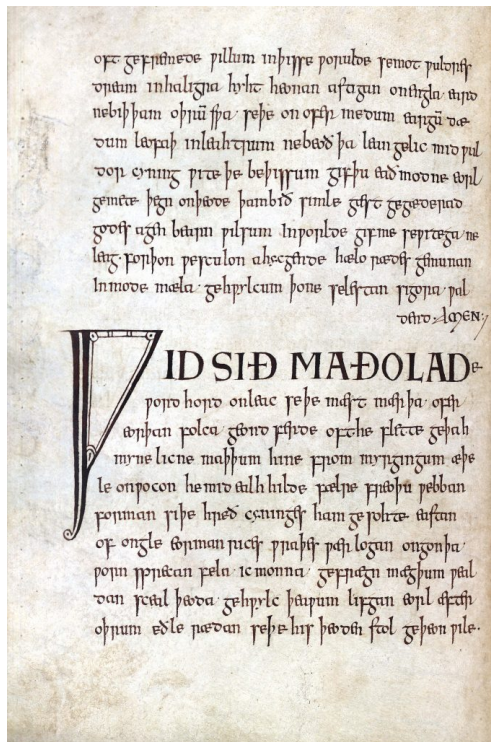 oft gefremede ƿillum inþisse ƿorulde semot ƿuldres
dream inhaligra hyht heonan astigan onengla eard
nebiþþam oþrū sƿa · seþe on ofer medum eargū dæ
dum leofaþ inleahtrum nebeoð þa lean gelic mid ƿul
dor cyning ƿite þe beþissum gifþu eað modne eorl
gemete þegn onþeode þambið simle gæst gegæderad
godes agen bearn ƿilsum Inƿorlde gifme seƿitega ne
leag · forþon ƿesculon ahycgende hælo rædes gemunan
Inmode mæla · gehƿylcum þone selestan sigora · ƿal
dend · AMEN:7
ǷID SIÐ MAÐOLADE
ƿord hord onleac seþe mæst mærþa ofer
eorþan folca geond ferde ofthe flette geþah
myne licne maþþum hine from myrgingum æþe
le onƿocon hemid ealh hilde fælre freoþu ƿebban
forman siþe hreð cyninges ham gesohte eastan
of ongle eorman rices ƿraþes ƿær logan ongonþa ·
ƿorn sprecan fela · ic monna · gefrægn mægþum ƿeal
dan sceal þeoda · gehƿylc þeaƿum lifgan eorl æfter
oþrum eðle rædan seþe his þeoden stol geþeon ƿile ·